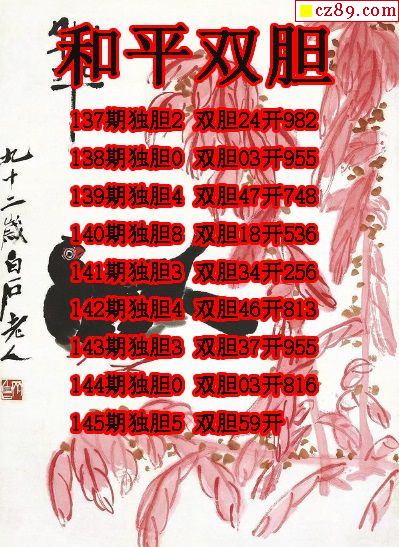 cz89.com
和平双胆
137期独胆2 双胆24开982
138期独胆0 双胆03开955
139期独胆4 双胆47开748
140期独胆8 双胆18开536
141期独胆3 双胆34开256
142期独胆4 双胆46开813
143期独胆3 双胆37开955
144期独胆0 双胆03开816
145期独胆5 双胆59开
九十二岁白石老人